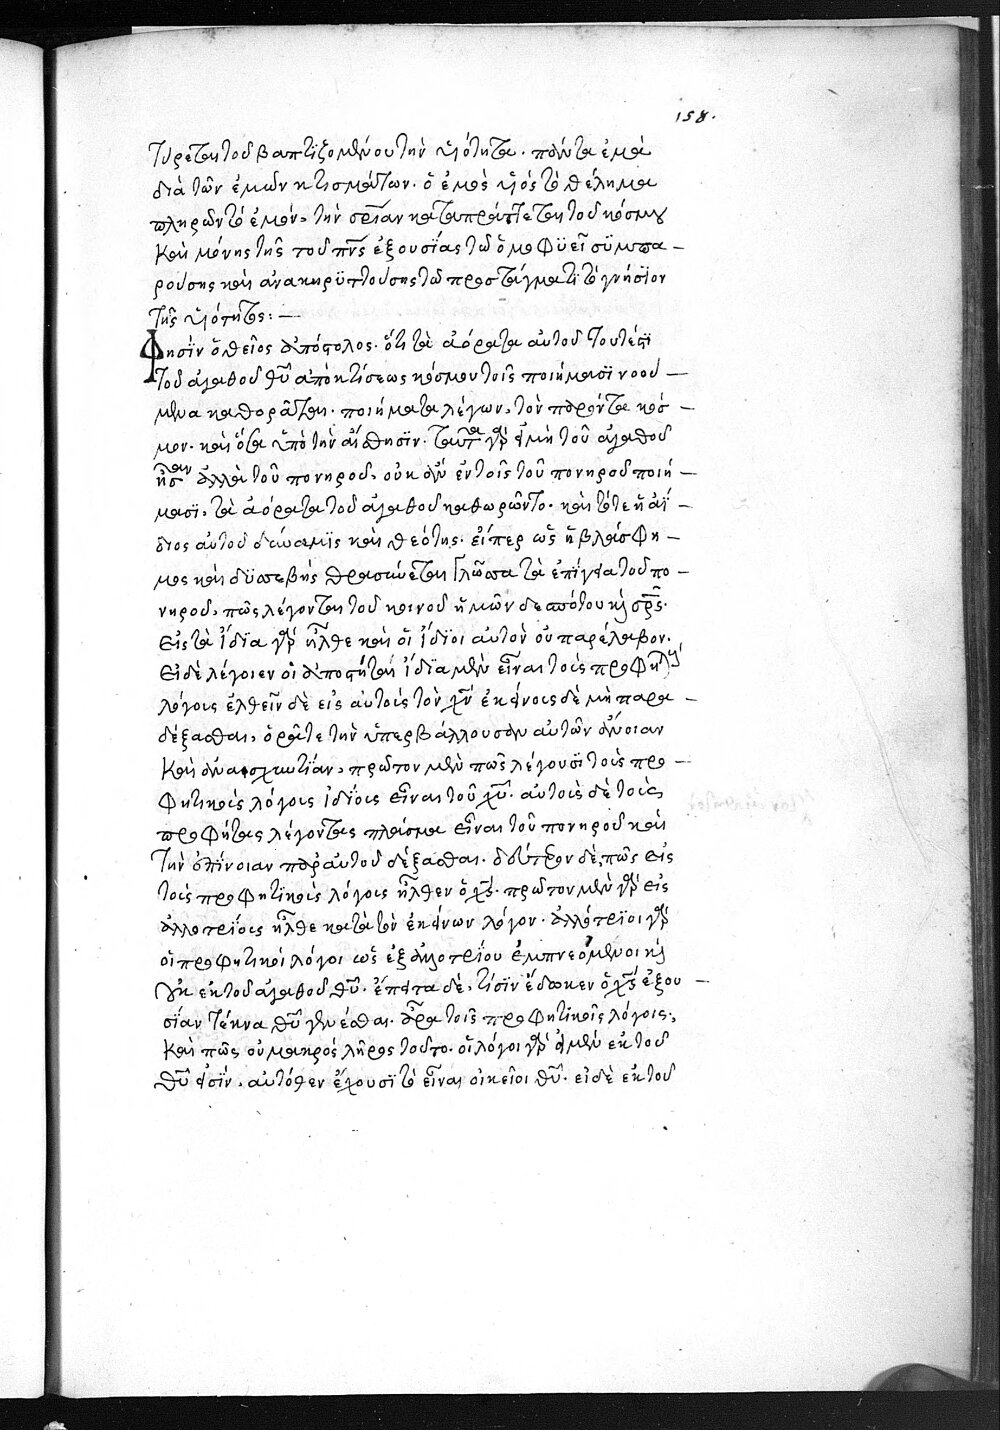 158.
τύρεται τοῦ βαπτιζομένου τὴν υἱότητα. πάντα ἐμὰ
διὰ τῶν ἐμῶν κτισμάτων. ὁ ἐμὸς υἱὸς τὸ θέλημα
πληρῶν τὸ ἐμόν, τὴν σρίαν καταπράττεται τοῦ κόσμου
καὶ μόνης τῆς τοῦ πνς ἐξουσίας τῶ ὁμοφυεῖ συμπα –
ρούσης καὶ ἀνακηρϋττούσης τῶ προστάγματι τὸ γνήσιον
τῆς υἱότητος: –
Φησὶν ὁ θεῖος ἀπόστολος. ὅτι τὰ ἀόρατα αὐτοῦ τουτέστι
τοῦ ἀγαθοῦ θῦ ἀπὸ κτίσεως κόσμου τοῖς ποιήμασϊ νοού –
μενα καθορᾶται. ποιήματα λέγων, τὸν παρόντα κόσ –
μον. καὶ ὅσα ὑπὸ τὴν αἴσθησϊν. ταῦτα γὰρ εἰ μὴ τοῦ ἀγαθοῦ
ἦσαν ἀλλὰ τοῦ πονηροῦ, οὐκ ἂν ἐν τοῖς τοῦ πονηροῦ ποιή –
μασϊ, τὰ ἀόρατα τοῦ ἀγαθοῦ καθωρῶντο. καὶ τότε ἡ ἀΐ –
διος αὐτοῦ δύναμϊς καὶ θεότης. εἴπερ ὡς ἡ βλάσφη –
μος καὶ δϋσσεβὴς θρασύνεται γλῶσσα τὰ ἐπίγεια τοῦ πο –
νηροῦ, πῶς λέγονται τοῦ κοινοῦ ἡμῶν δεσπότου κὶ σρς.
εἰς τὰ ἴδϊα γὰρ ἦλθε καὶ οἱ ἴδϊοι αὐτὸν οὐ παρέλαβον.
εἰ δὲ λέγοιεν οἱ ἀποστάται ἴδϊα μὲν εἶναι τοὺς προφητικοὺς
λόγοις ἐλθεῖν δὲ εἰς αὐτοὺς τὸν χν ἐκείνοις δὲ μὴ παρα –
δέξασθαι, ὁρᾶτε τὴν ὑπερβάλλουσαν αὐτῶν ἄνοιαν
καὶ ἀναισχυντίαν, πρῶτον μὲν πῶς λέγουσϊ τοὺς προ –
φητικοὺς λόγοις ἰδίοις εἶναι τοῦ χῦ. αὐτοὺς δὲ τοὺς
προφήτας λέγοντας πλάσμα εἶναι τοῦ πονηροῦ καὶ
τὴν ἐπίνοιαν παρ αὐτοῦ δέξασθαι. δεύτερον δὲ, πῶς εἰς
τοὺς προφητϊκοὺς λόγοις ἦλθεν ὁ χς. πρῶτον μὲν γὰρ εἰς
ἀλλοτρίοις ἦλθε κατὰ τὸν ἐκείνων λόγον. ἀλλότρϊοι γὰρ
οἱ προφητικοὶ λόγοι ὡς ἐξ ἀλλοτρίου ἐμπνεόμενοι κὶ
οὐκ ἐκ τοῦ ἀγαθοῦ θῦ. ἔπειτα δὲ, τίσϊν ἔδωκεν ὁ χς ἐξου –
σίαν τέκνα θῦ γενέσθαι. ἆρα τοῖς προφητικοῖς λόγοις,
καὶ πῶς οὐ μακρὸς λῆρος τοῦτο. οἱ λόγοι γὰρ εἰ μὲν ἐκ τοῦ
θῦ εἰσϊν, αὐτόθεν ἔχουσϊ τὸ εἶναι οἰκεῖοι θῦ. εἰ δὲ ἐκ τοῦ